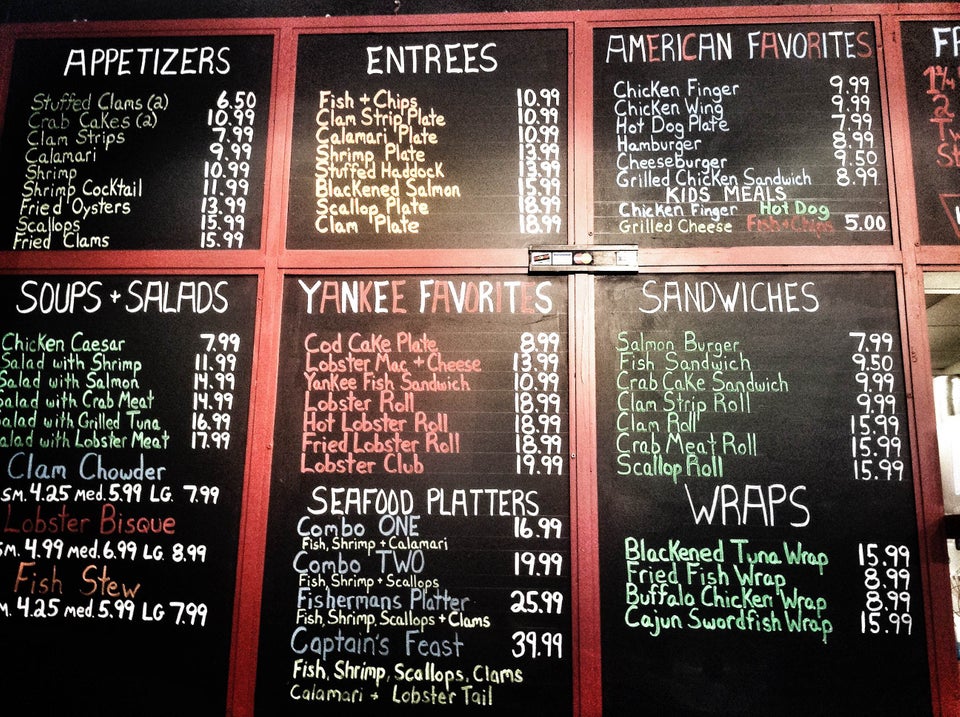 APPETIZERS
Stuffed Clams (2) 6.50
Crab Cakes (2) 10.99
Clam Strips 7.99
Calamari 9.99
Shrimp 10.99
Shrimp Cocktail 11.99
Fried Oysters 13.99
Scallops 15.99
Fried Clams 15.99
ENTREES
Fish + Chips 10.99
Clam Strip Plate 10.99
Calamari Plate 10.99
Shrimp Plate 13.99
Stuffed Haddock 13.99
Blackened Salmon 15.99
Scallop Plate 18.99
Clam Plate 18.99
AMERICAN FAVORITES
Chicken Finger 9.99
Chicken Wing 9.99
Hot Dog Plate 7.99
Hamburger 8.99
Cheeseburger 9.50
Grilled Chicken Sandwich 8.99
KIDS MEALS
Chicken Finger Hot Dog
Grilled Cheese Fish + Chips 5.00
SOUPS + SALADS
Chicken Caesar 7.99
Salad with Shrimp 11.99
Salad with Salmon 14.99
Salad with Crab Meat 14.99
Salad with Grilled Tuna 16.99
alad with Lobster Meat 17.99
Clam Chowder
SM. 4.25 med. 5.99 LG. 7.99
Lobster Bisque
SM. 4.99 med. 6.99 LG. 8.99
Fish Stew
M. 4.25 med. 5.99 LG 7.99
YANKEE FAVORITES
Cod Cake Plate 8.99
Lobster Mac + Cheese 13.99
Yankee Fish Sandwich 10.99
Lobster Roll 18.99
Hot Lobster Roll 18.99
Fried Lobster Roll 18.99
Lobster Club 19.99
SEAFOOD PLATTERS
Combo ONE 16.99
Fish, Shrimp + Calamari
Combo TWO 19.99
Fish, Shrimp + Scallops
Fishermans Platter 25.99
Fish, Shrimp, Scallops + Clams
Captain's Feast 39.99
Fish, Shrimp, Scallops, Clams
Calamari + Lobster Tail
SANDWICHES
Salmon Burger 7.99
Fish Sandwich 9.50
Crab Cake Sandwich 9.99
Clam Strip Roll 9.99
Clam Roll 15.99
Crab Meat Roll 15.99
Scallop Roll 15.99
WRAPS
Blackened Tuna Wrap 15.99
Fried Fish Wrap 8.99
Buffalo Chicken Wrap 8.99
Cajun Swordfish Wrap 15.99